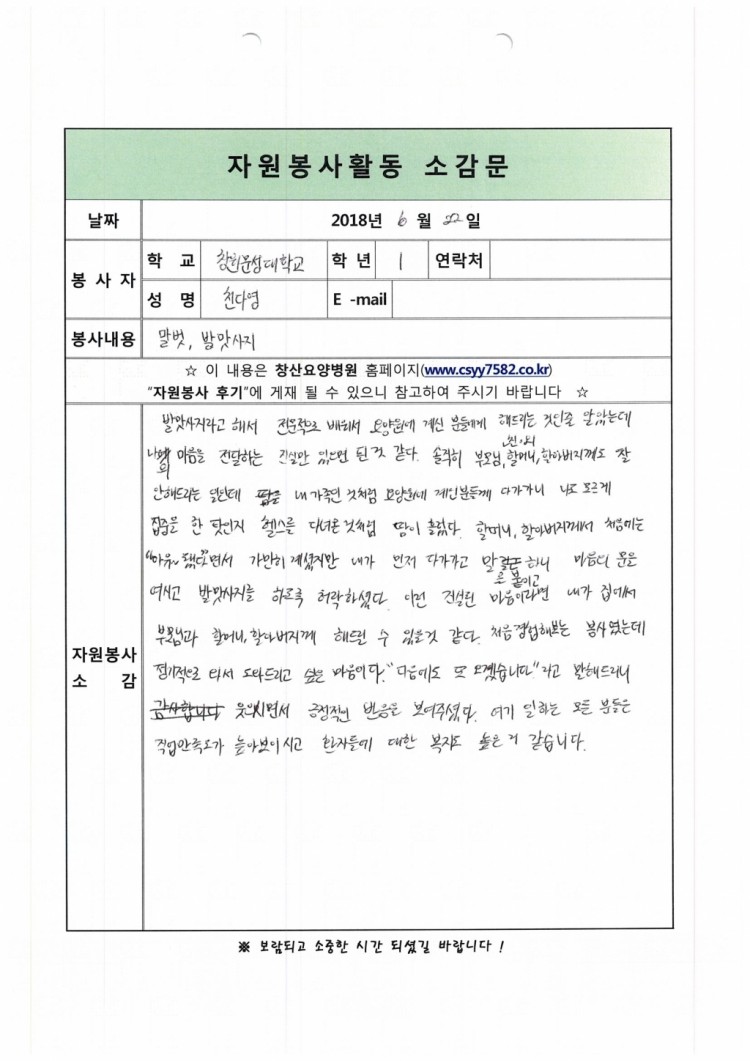 자원봉사활동 소감문
날짜 2018년 6 월 22 일
봉 사 자
학 교 창원문성대학교 학 년 1 연락처
성 명 천다영 E -mail
봉사내용 말벗, 발맛사지
☆ 이 내용은 창산요양병원 홈페이지(www.csyy7582.co.kr)
"자원봉사 후기"에 게재 될 수 있으니 참고하여 주시기 바랍니다 ☆
자원봉사
소 감
발맛사지라고 해서 전문적으로 배워서 요양원에 계신 분들에게 해드리는 것인줄 알았는데
나의 마음을 전달하는 진실만 있으면 된것 같다. 솔직히 부모님, 할머니, 할아버지께도 잘
안해드리는 일인데 내 가족인 것처럼 요양원에 계신분들께 다가가니 나도 모르게
집중을 한 탓인지 헬스를 다녀온것처럼 땀이 흘렀다. 할머니, 할아버지께서 처음에는
"아유~ 됐다"면서 가만히 계셨지만 내가 먼저 다가가고 말을 붙이고 하니 마음의 문을
여시고 발맛사지를 하도록 허락하셨다. 이런 진실된 마음이라면 내가 집에서
부모님과 할머니, 할아버지께 해드릴 수 있을것 같다. 처음경험해보는 봉사였는데
정기적으로 와서 도와드리고 싶은 마음이다. "다음에도 또 오겠습니다."라고 말해드리니
감사합니다 웃으시면서 긍정적인 반응을 보여주셨다. 여기 일하는 모든 분들은
직업만족도가 높아보이시고 환자들에 대한 복지도 높은 거 같습니다.
※ 보람되고 소중한 시간 되셨길 바랍니다 !